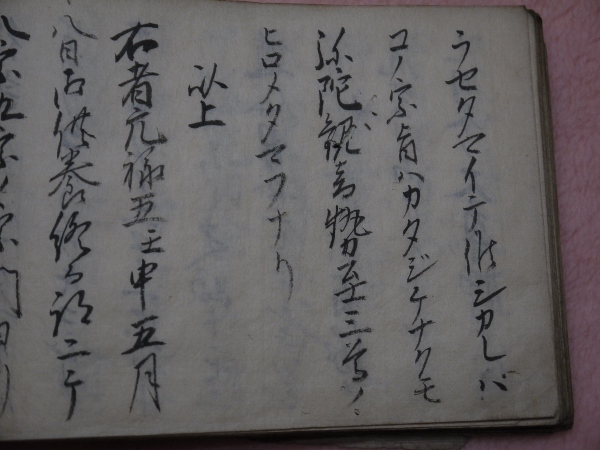 ラセタマイテ候シカレバ
コノ宗旨ハカタジケナクモ
弥陀観音勢至三尊ノ
ヒロメタマフナリ
以上
右者元禄五壬申五月
八日御供養
八宗九宗ノ宗門ヨリ